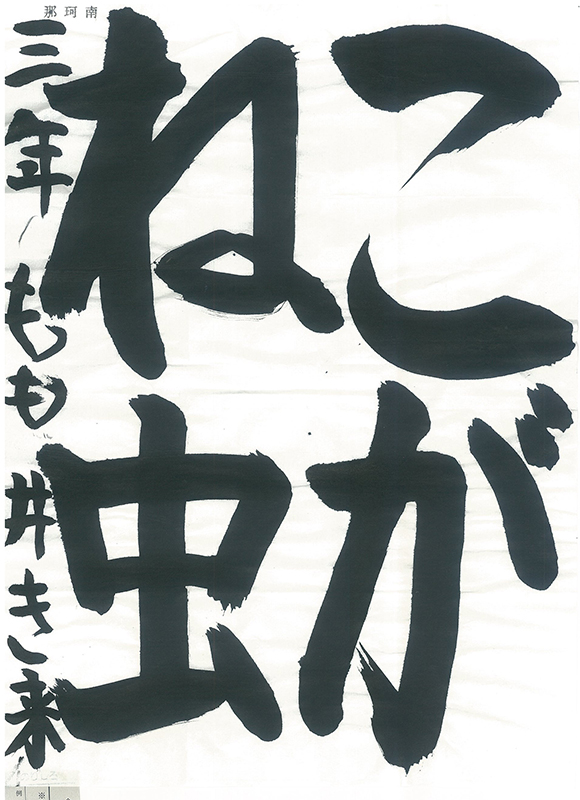 那珂南
こが
ね虫
三年 もも井き来